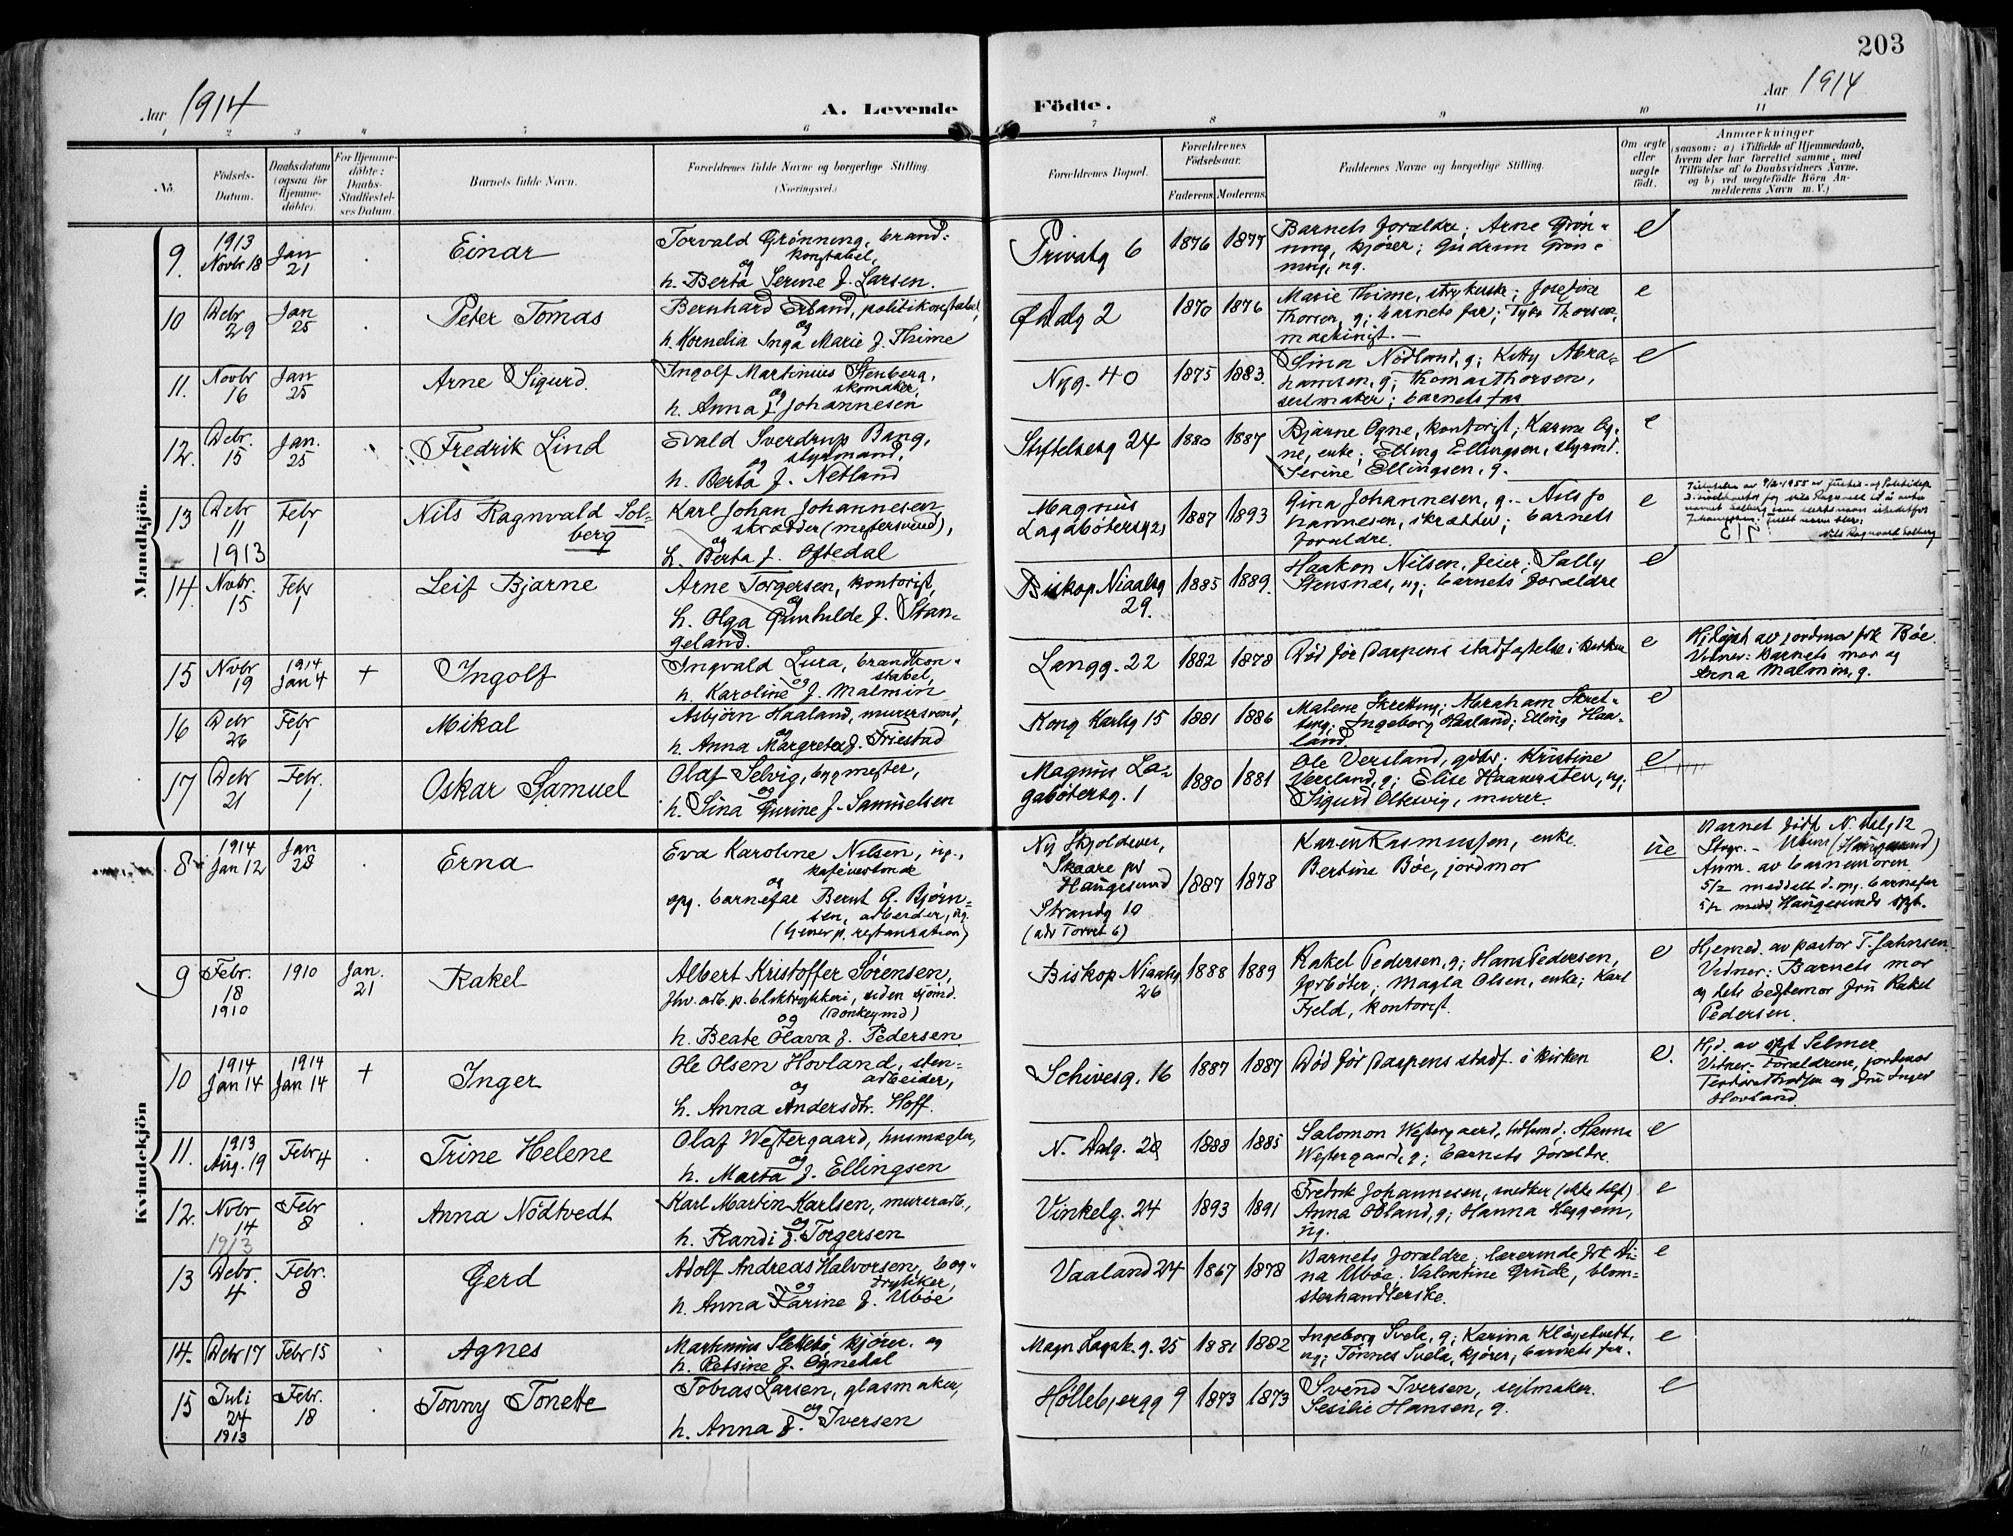 203
Aar 1914
A. Levende Födte.
Aar 1914
1 2 3 4 5 6 7 8 9 10 11
No.
Födsels-Datum.
Daabsdatum (ogsaa for Hjemme-döbte).
For Hjemme-döbte: Daabs-Stadfæstel-ses Datum.
Barnets fulde Navn.
Forældrenes fulde Navne og borgerlige Stilling.
(Næringsvei.)
Forældrenes Bopæl.
Forældrenes Födselsaar.
Faderens. Moderens.
Faddernes Navne og borgerlige Stilling.
Om ægte eller uægte födt.
Anmærkninger
(saasom: a) i Tilfælde af Hjemmedaab, hvem der har forrettet samme, med Tilföielse af to Daabsvidners Navne, og b) ved uægtefödte Börn An-melderens Navn m. V.)
Mandkjön.
9. 1913 Novbr 18
Jan 21
Einar
Torvald Grönning, brand-
konstabel,
og
h. Berta Serine f. Larsen.
Privatg 6
1876 1877
Barnets foraldre; Arne Grön-
ning, kjörer; Gudrun Grön-
ning, ug.
e
10 Debr 29
Jan 25
Peter Tomas
Bernhard Erland, politikonstabel,
og
h. Kornelia Inga Marie f. Thime
Ø Dalg 2
1870 1876
Marie Thime, strykerske; Josefine
Thorsen, g; barnets far; Tybo Thorsen,
maskinist.
e
11. Novbr 16
Jan 25
Arne Sigurd.
Ingolf Martinius Stenberg,
skomaker,
og
h. Anna f. Johannesen
Nyg. 40
1875 1883.
Gina Nödland, g; Kitty Abra-
hamsen, g; Thomas Thorsen,
seilmaker; barnets far
e
12. Debr. 15
Jan. 25
Fredrik Lind
Evald Sverdrup Bang,
styrmand,
og
h. Berta f. Netland
Stiftelsesg 24
1880 1887
Bjarne Ogne, kontorist; Karen Og-
ne, enke; Elling Ellingsen, styrmd.
Serine Ellingsen, g.
e
13 Debr 11 1913
Febr 1
Nils Ragnvald Sol-
berg
Karl Johan Johannesen
skrædder (mestersvend),
og
h. Berta f. Oftedal
Magnus
Lagabötersg 21
1887 1893
Gina Johannesen, g. Nils Jo
hannesen, skrædder; barnets
foraldre.
e
Nils Ragnvald Solberg
14. Novbr. 15
Febr 1
Leif Bjarne
Arne Torgersen, kontorist,
og
h. Olga Gunhilde f. Stan-
geland.
Biskop Nialsg
29.
1885 1889.
Haakon Nilsen, feier; Sally
Stensnæs, ug; barnets foraldre
e
15 Novbr 19
1914 Jan 4
+
Ingolf
Ingvald Lura, brandkon-
stabel,
og
h. Karoline f. Malmin
Langg. 22
1882 1878
Död för daapens stadfæstelse i kirken
e
Hj.döpt av jordmor frk Böe.
Vidner: Barnets mor og
Anna Malmin, g.
16 Debr 26
Febr 1
Mikal
Asbjörn Haaland, murersvend,
og
h. Anna Margreta f. Friestad
Kong Karlsg 15
1881 1886
Malene Skretting; Abraham Skret-
ting; Ingeborg Haaland; Elling Haa-
land.
e
17 Debr 21
Febr. 1
Oskar Samuel
Olaf Selvig, bygmester,
og
h. Sina Gurine f. Samuelsen
Magnus La-
gabötersg. 1
1880 1881
Ole Versland, gbdr; Kristine
Versland, g; Elise Haaversten, ug;
Sigurd Oltesvig, murer.
e
Kvindekjön
8 1914 Jan 12
Jan 28
Erna
Eva Karoline Nilsen, ug.,
kafévertinde
og
opg. barnefar Bernt G. Björn-
sen, arbeider, ug.
Ny Skjoldever,
Skaare pr
Haugesund
Strandg 10
(adr Torvet 6)
1887 1878
Karen Rasmussen, enke
Bertine Böe, jordmor
ue
Barnet födt N. Dalg 12
Anm. av barnemoren
5/2 meddelt d. opg. barnefar
9 Febr. 18 1910
1910
Jan. 21
Rakel
Albert Kristoffer Sörensen,
fhv. arb. p. bliktrykkeri, siden sjömd.
(Donkeymd)
og
h. Beate Olava f. Pedersen
Biskop Nialsg
26
1888 1889
Rakel Pedersen, g; Hans Pedersen,
forböter; Magla Olsen, enke; Karl
Fjeld, kontorist.
e
Hjemed. av pastor T. Jahnsen
Vidner: Barnets mor
og dets bedstemor fru Rakel
Pedersen.
10 1914 Jan 14
1914 Jan 14
+
Inger
Ole Olsen Hovland, sten-
arbeider,
og
h. Anna Andersdtr. Hoff.
Schivesg. 16
1887 1887
Död för daapens stadf. i kirken
e.
Hjd. av spt Selmer
Vidner: Foraldrene, jordmor
og fru Inger
Hovland.
11. 1913 Aug. 19
Febr 4
Trine Helene
Olaf Westergaard, husmægler,
og
h. Marta f. Ellingsen
N. Dalg. 28
1888 1885
Salomon Westergaard, Hanna
Westergaard, g; barnets foraldre.
e
12. Novbr 14 1913
Febr 8
Anna Nödtvedt
Karl Martin Karlsen, murerarb.,
og
h. Randi f. Torgersen
Vinkelg. 24
1893 1891
Fredrik Johannesen, snedker (ikke luth)
Anna Obland, g; Hanna Heggem,
ug.
e
13 Debr. 4
Febr. 8
Gerd
Adolf Andreas Halvorsen, bog-
trykker,
og
h. Anna Karine f. Uböe
Vaaland 24
1867 1878
Barnets foraldre, lærerinde frk Di-
na Uböe, Valentine Grude, blom-
sterhandlerske.
e
14. Debr 17
Febr 15
Agnes
Martinius Slettebö kjörer. og
h. Petsine f. Ognedal
Magn Lagab. g. 25
1881 1882
Ingeborg Svela, g; Karina Klöystuett,
ug; Tönnes Svela, kjörer, barnets far.
e
15 Juli 24 1913
Febr. 18
Tonny Tonette
Tobias Larsen, glasmaker,
og
h. Anna f. Iversen
Höllebjergg 9
1873 1873
Svend Iversen, sejlmaker.
Sesilie Hansen, g.
e